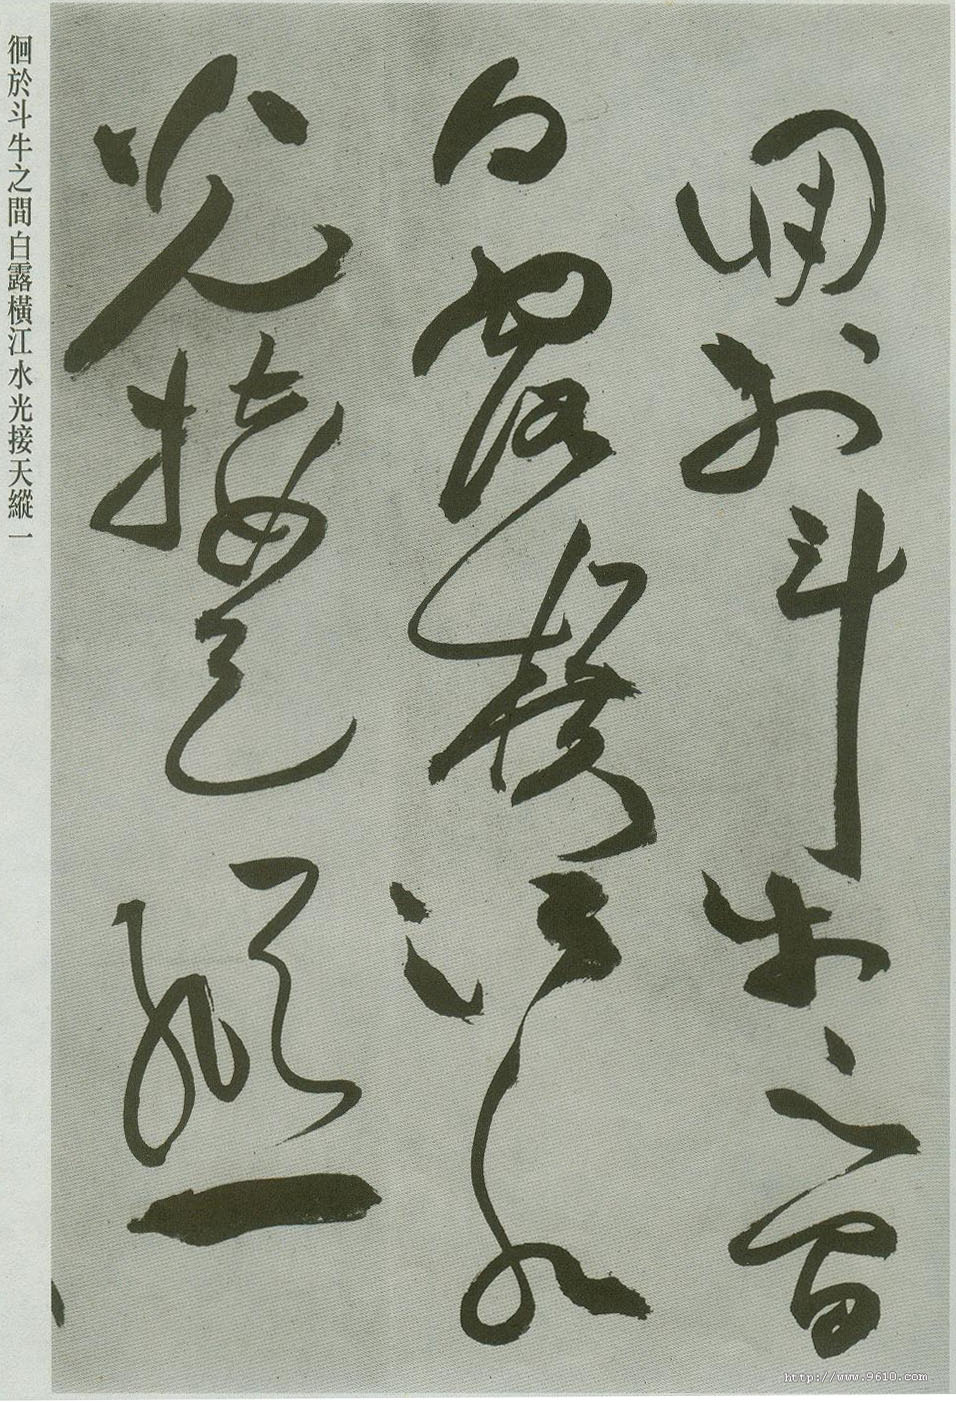 徊於斗牛之間
白露橫江水
光接天縱一
徊於斗牛之間白露橫江水光接天縱一
http://www.9610.com